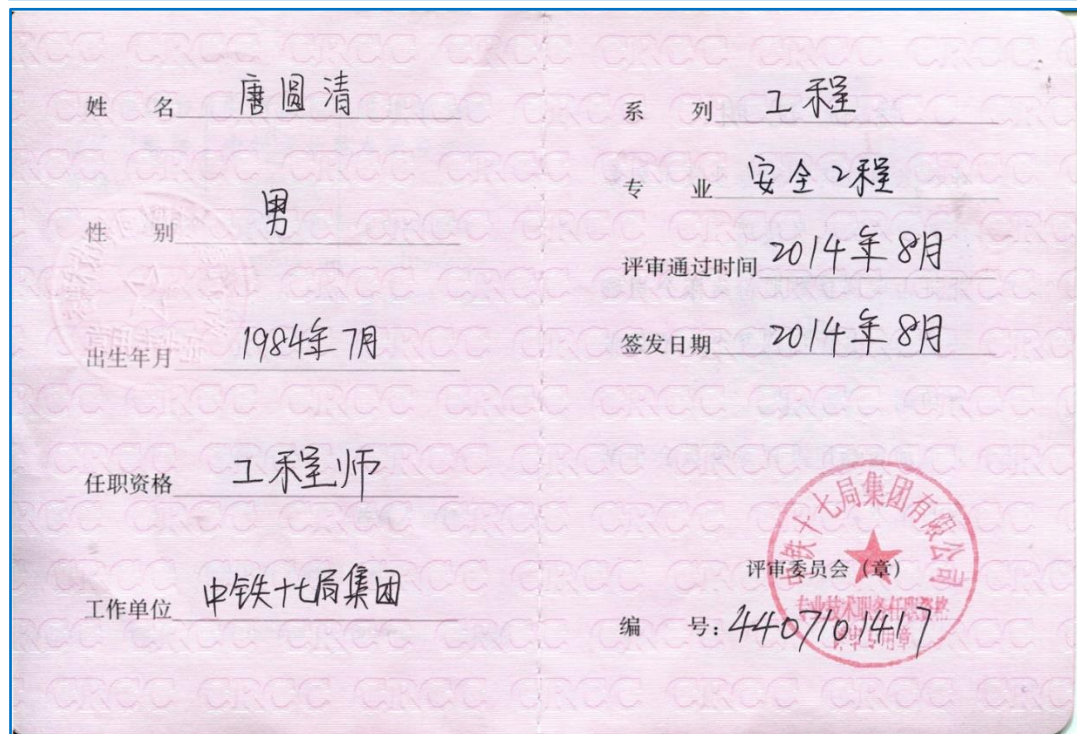 姓 名 唐圆清
性 别 男
出生年月 1984年7月
任职资格 工程师
工作单位 中铁十七局集团
系 列 工程
专 业 安全工程
评审通过时间 2014年8月
签发日期 2014年8月
评审委员会（章）
编 号：4407101417
中铁十七局集团有限公司
专业技术职务任职资格
评审专用章